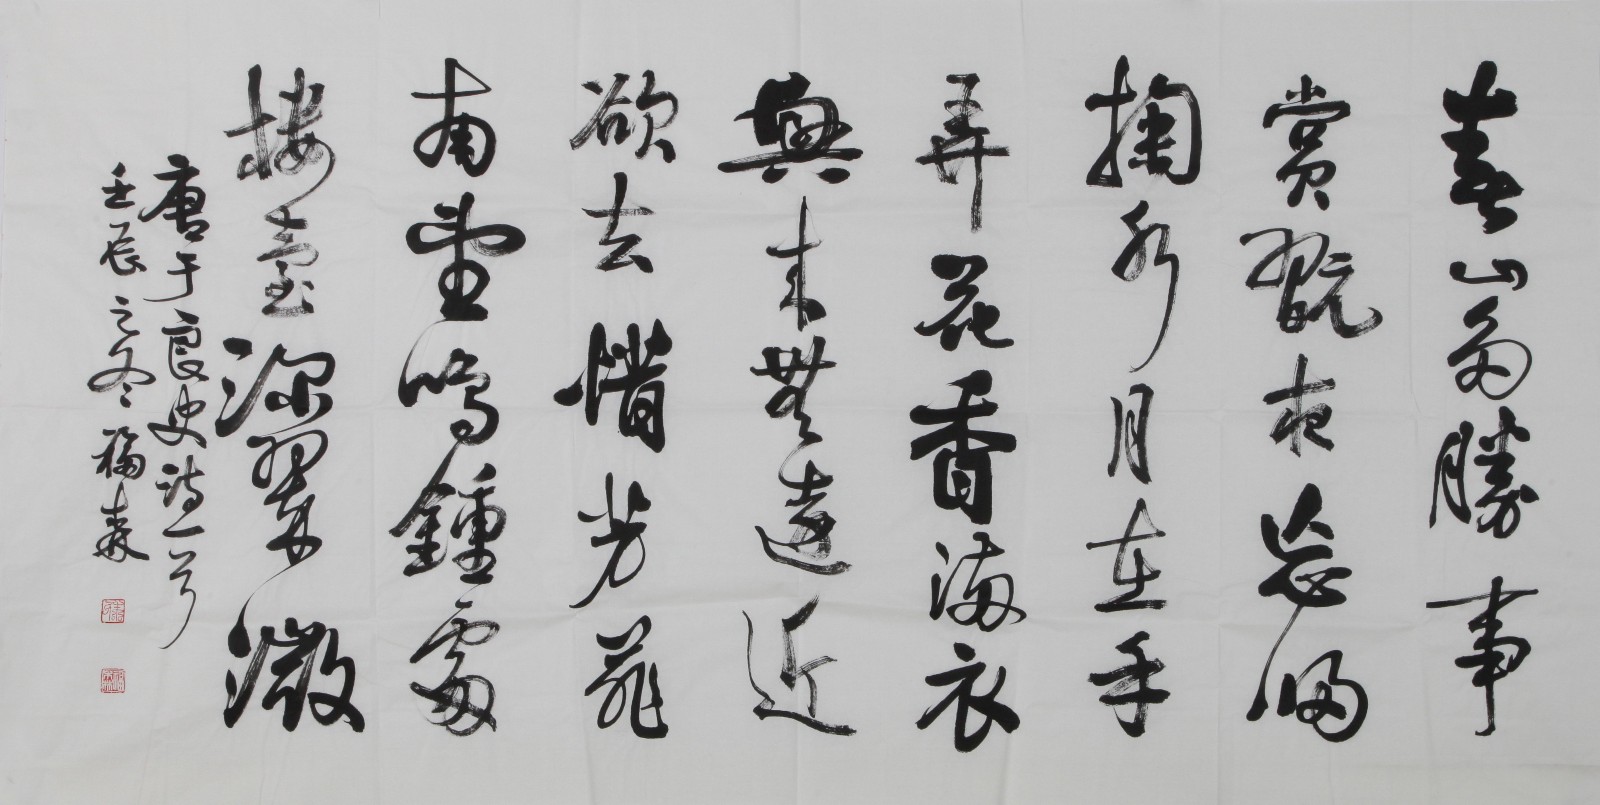 春山多勝事
賞翫夜忘歸
掬水月在手
弄花香滿衣
興來無遠近
欲去惜芳菲
南望鳴鍾處
樓臺深翠微
唐于良史詩一首
壬辰之冬福森